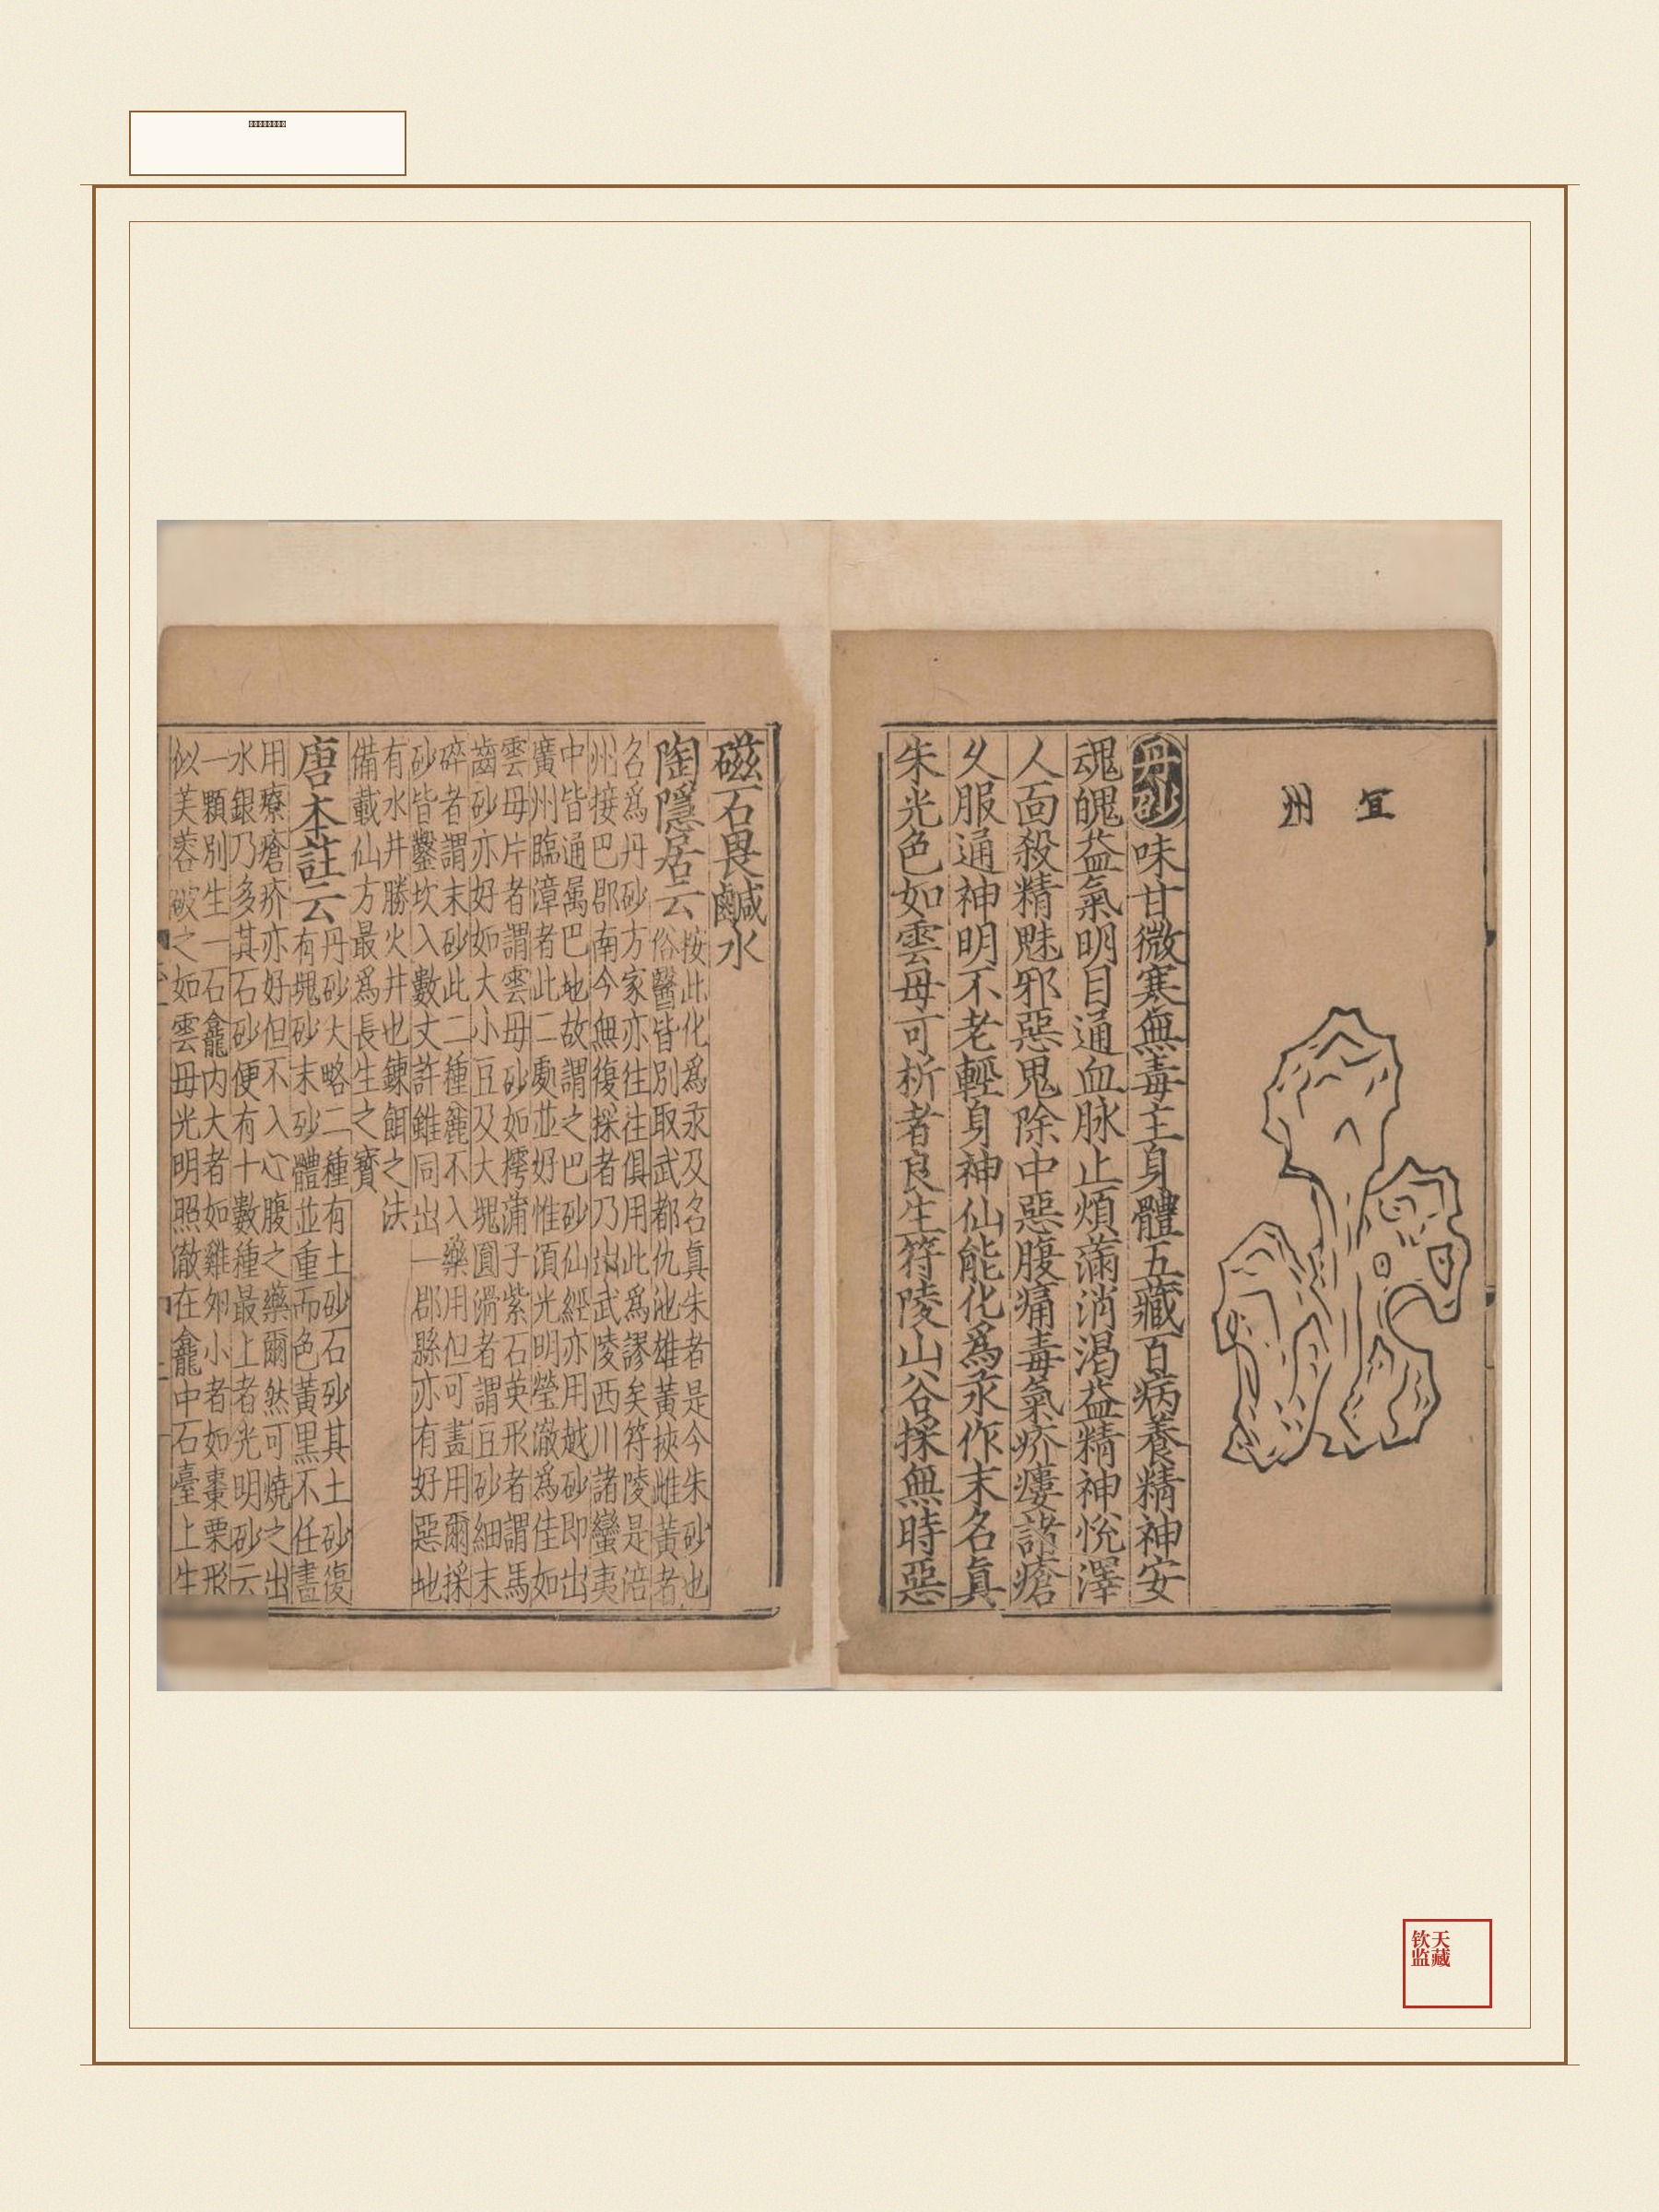 宜州
丹砂味甘微寒無毒主身體五藏百病養精神安
魂魄益氣明目通血脉止煩滿消渴益精神悅澤
人面殺精魅邪惡鬼除中惡腹痛毒氣疥瘻諸瘡
久服通神明不老輕身神仙能化爲汞作末名眞
朱光色如雲母可析者良生符陵山谷採無時惡
磁石畏鹹水
陶隱居云按此化爲汞及名眞朱者是今朱砂也
俗醫皆別取武都仇池雄黃挾雌黃者
名爲丹砂方家亦往往俱用此爲謬矣符陵是涪
州接巴郡南今無復採者乃出武陵西川諸蠻夷
中皆通属巴地故謂之巴砂仙經亦用越砂即出
廣州臨漳者此二處並好惟須光明瑩澈爲佳如
雲母片者謂雲母砂如樗蒲子紫石英形者謂馬
齒砂亦好如大小豆及大塊圓滑者謂豆砂細末
碎者謂末砂此二種麄不入藥用但可畫用爾採
砂皆鑿坎入數丈許雖同出一郡縣亦有好惡地
有水井勝火井也鍊餌之法
備載仙方最爲長生之寶
唐本註云丹砂大略二種有土砂石砂其土砂復
有塊砂末砂體並重而色黃黒不任畫
用療瘡疥亦好但不入心腹之藥爾然可燒之出
水銀乃多其石砂便有十數種最上者光明砂云
一顆別生一石龕内大者如雞卵小者如棗栗形
似芙蓉破之如雲母光明照徹在龕中石臺上生
钦天
监藏